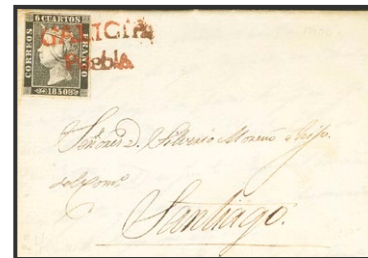 6 CUARTOS
CORREOS
FRANCO
1850
GALICIA
Puebla
Señores D. Silverio Moreno è hijo.
del Comº
Santiago.